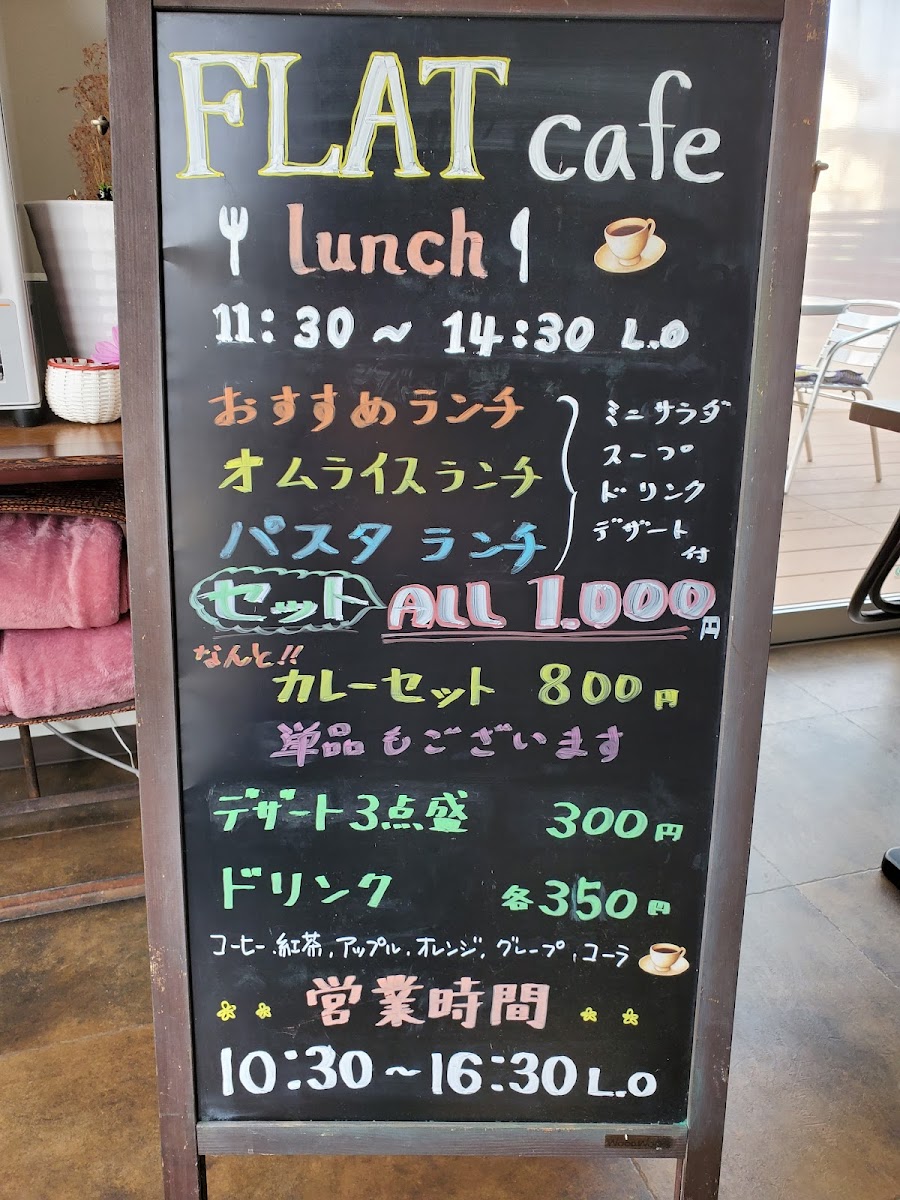 FLAT cafe
lunch
11:30 ~ 14:30 L.O
おすすめランチ
オムライスランチ
パスタ ランチ
ミニサラダ
スープ
ドリンク
デザート
付
セット ALL 1.000円
なんと!!
カレーセット 800円
単品もございます
デザート3点盛 300円
ドリンク 各350円
コーヒー.紅茶,アップル,オレンジ,グレープ,コーラ
営業時間
10:30~16:30 L.O